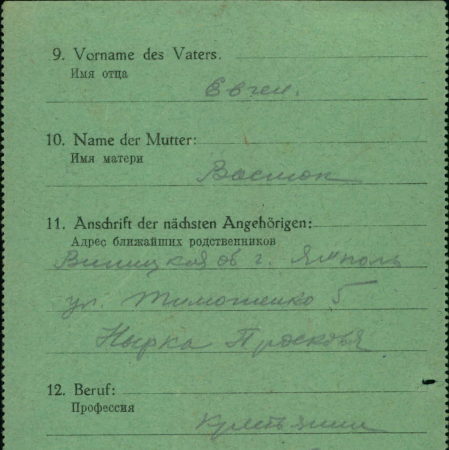 9. Vorname des Vaters.
Имя отца
Евген.
10. Name der Mutter:
Имя матери
Восток
11. Anschrift der nächsten Angehörigen:
Адрес ближайших родственников
Виницкая об г. Ямполь
ул. Тимошенко 5
Нырка Прасковя
12. Beruf:
Профессия